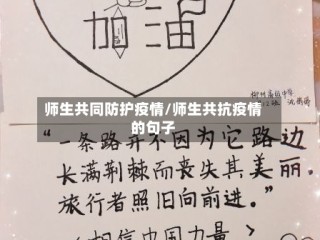 加油
师生共同防护疫情/师生共抗疫情
的句子
“一条路并不因为它路边
长满荆棘而丧失其美丽。
旅行者照旧向前进。”
<相信中国力量>